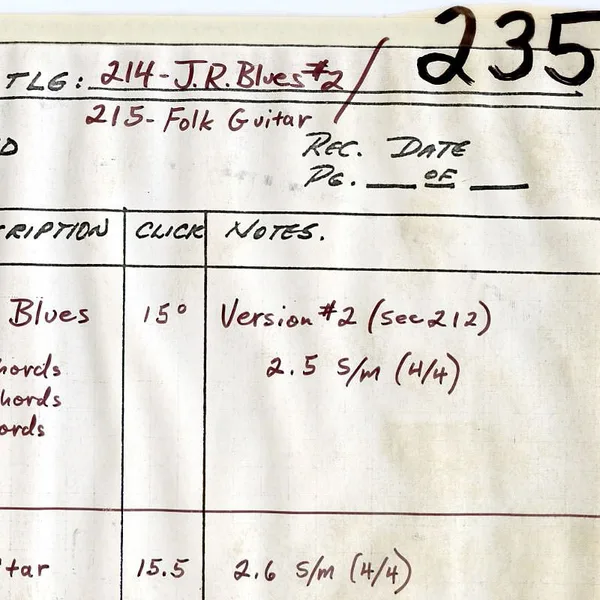 235
TLG: 214-J.R.Blues #2 /
215- Folk Guitar
D
REC. DATE
PG. ___ OF ___
RIPTION CLICK NOTES.
Blues 15° Version #2 (sec 212)
hords 2.5 S/m (4/4)
hords
ords
tar 15.5 2.6 S/m (4/4)